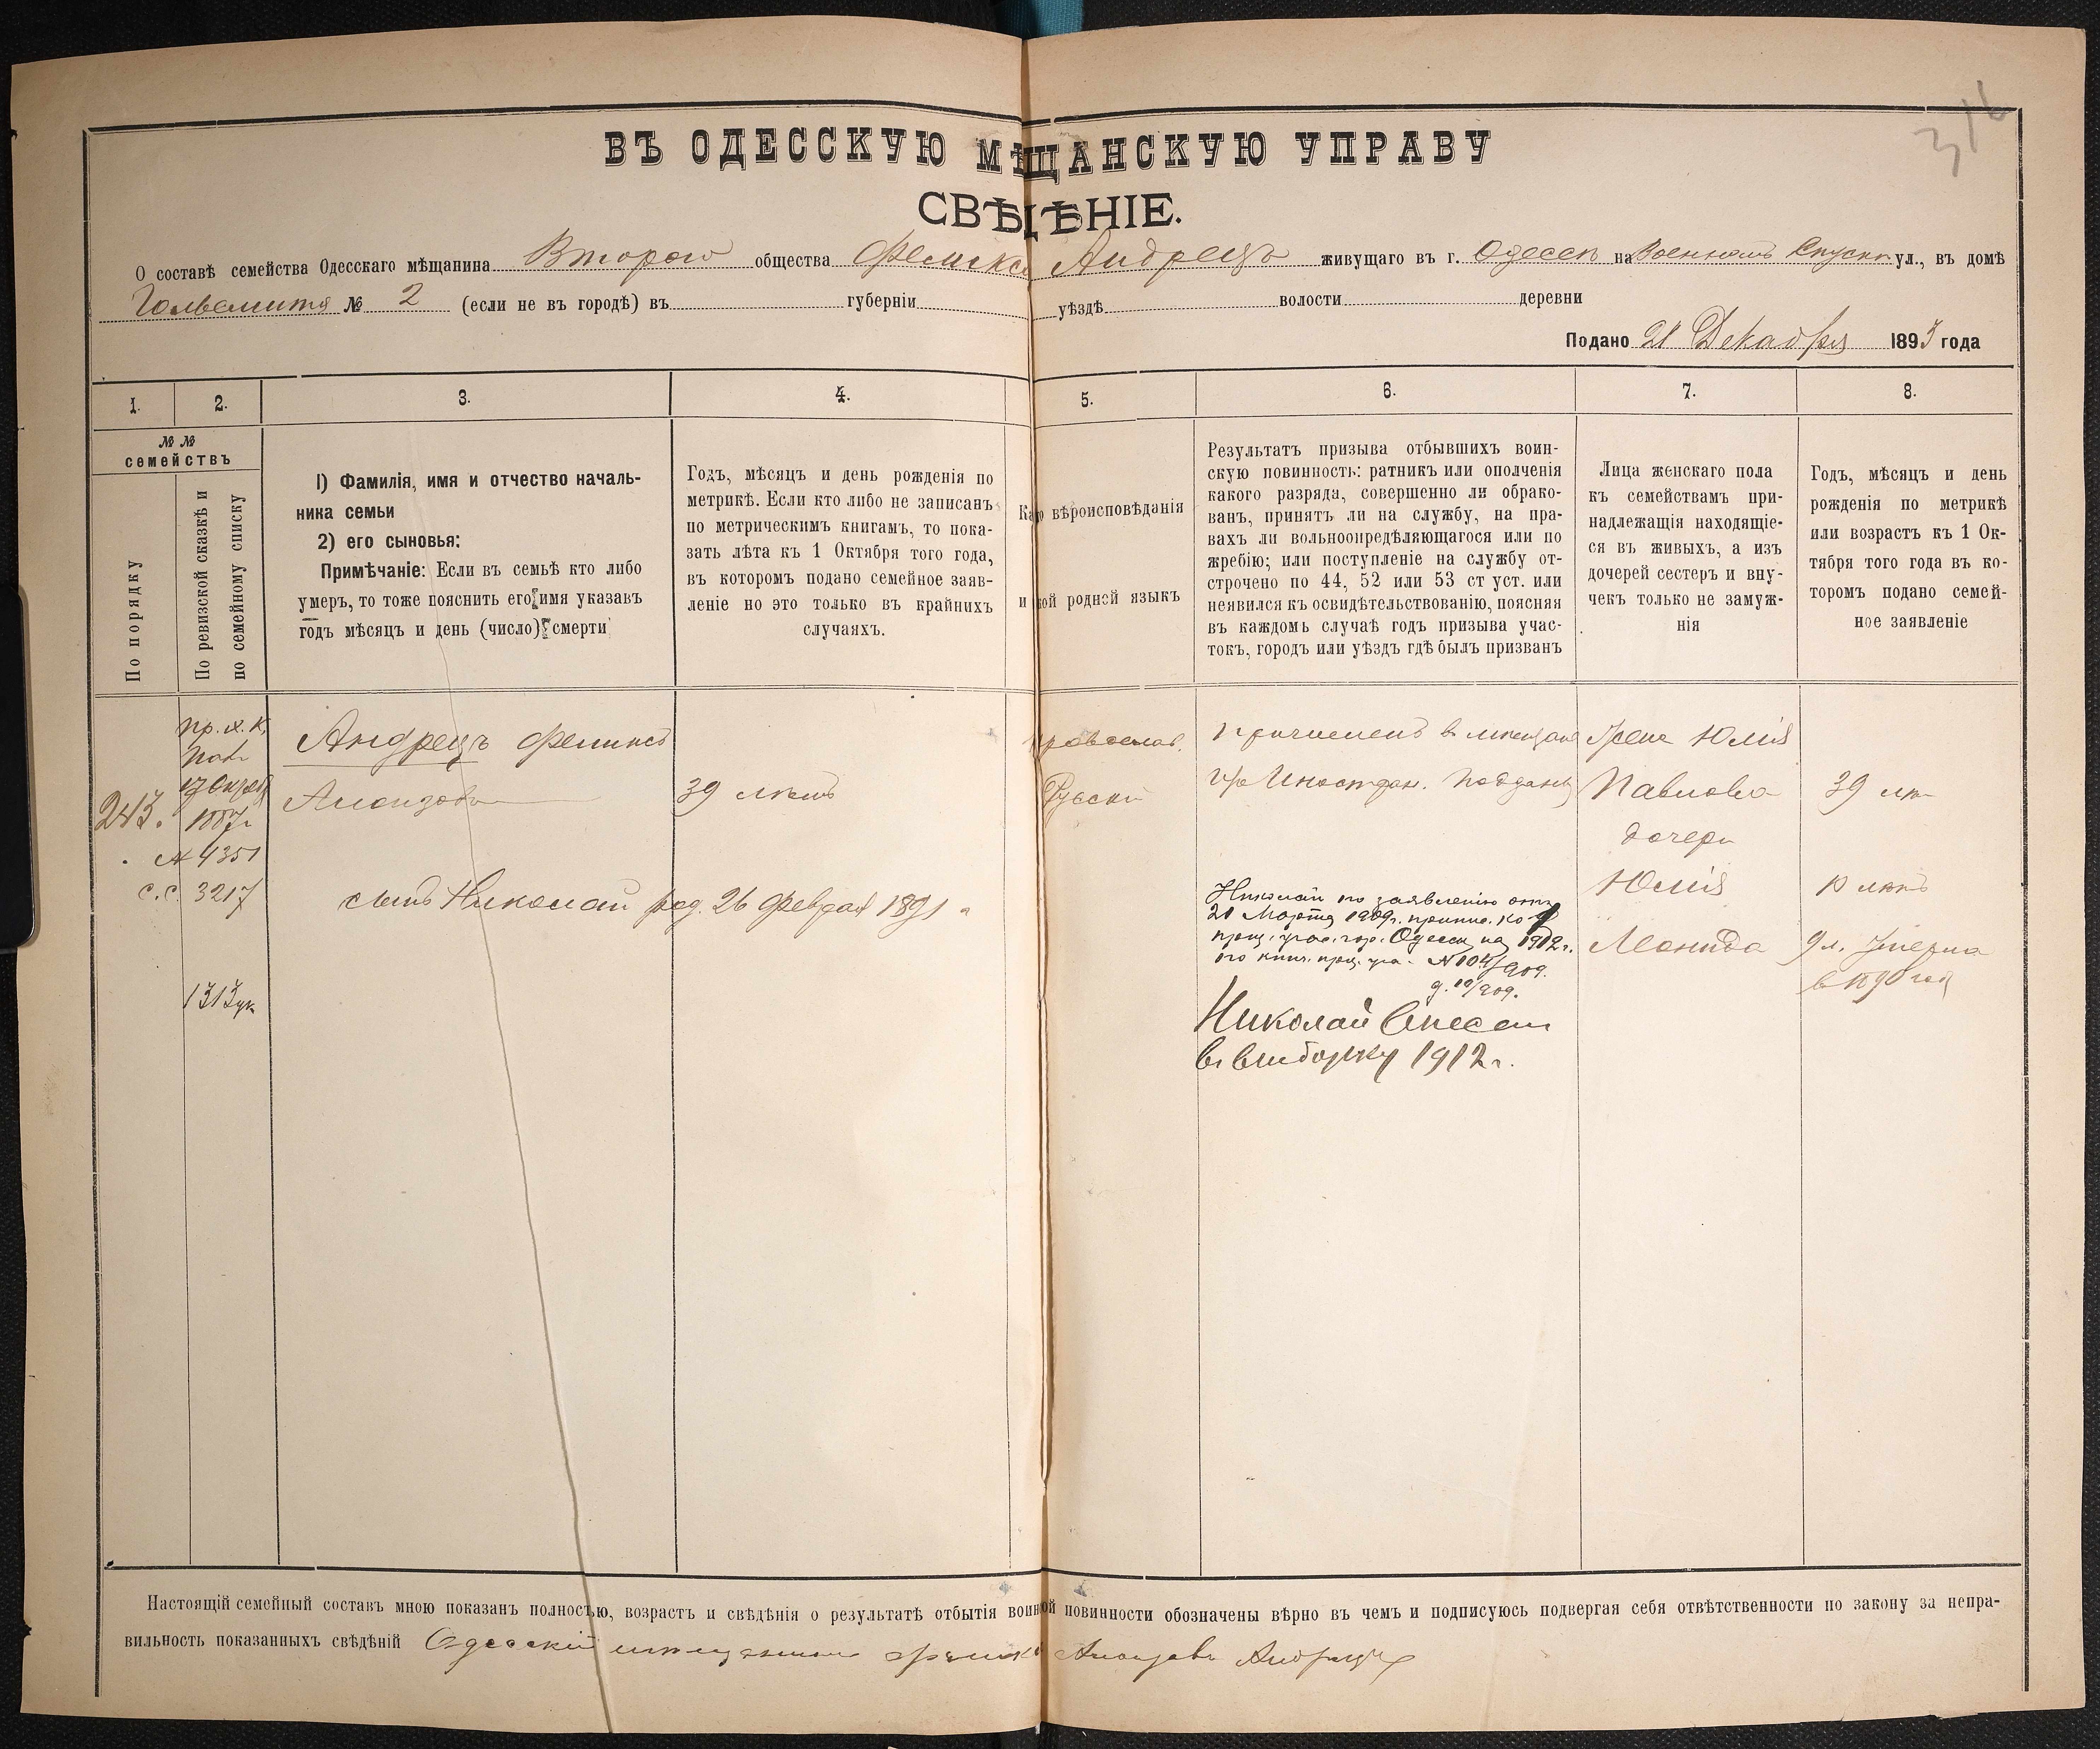 316
ВЪ ОДЕССКУЮ МѢЩАНСКУЮ УПРАВУ
СВѢДѢНІЕ.
О составѣ семейства Одесскаго мѣщанина Второго общества Феликса Андрецъ живущаго въ г. Одессѣ на Военномъ Спускѣ ул., въ домѣ
№ 2 (если не въ городѣ) въ губерніи уѣздѣ волости деревни
Подано 21 Декабря 1893 года
1. 2. 3. 4. 5. 6. 7. 8.
№№ семействъ
По порядку
По ревизской сказкѣ и
по семейному списку
1) Фамилія, имя и отчество началь-
ника семьи
2) его сыновья:
Примѣчаніе: Если въ семьѣ кто либо
умеръ, то тоже пояснить его имя указавъ
годъ мѣсяцъ и день (число) смерти
Годъ, мѣсяцъ и день рожденія по
метрикѣ. Если кто либо не записанъ
по метрическимъ книгамъ, то пока-
зать лѣта къ 1 Октября того года,
въ которомъ подано семейное заяв-
леніе но это только въ крайнихъ
случаяхъ.
Како вѣроисповѣданія
и кой родной языкъ
Результатъ призыва отбывшихъ воин-
скую повинность: ратникъ или ополченія
какого разряда, совершенно ли обрако-
ванъ, принятъ ли на службу, на пра-
вахъ ли вольноопредѣляющагося или по
жребію; или поступленіе на службу от-
строчено по 44, 52 или 53 ст уст. или
неявился къ освидѣтельствованію, поясняя
въ каждомъ случаѣ годъ призыва учас-
токъ, городъ или уѣздъ гдѣ былъ призванъ
Лица женскаго пола
къ семействамъ при-
надлежащія находящіе-
ся въ живыхъ, а изъ
дочерей сестеръ и вну-
чекъ только не замуж-
нія
Годъ, мѣсяцъ и день
рожденія по метрикѣ
или возрастъ къ 1 Ок-
тября того года въ ко-
торомъ подано семей-
ное заявленіе
243.
пр. х. К.
1887г
№ 4351
с.с. 3217
1313 ук
Андрецъ Феликсъ
39 лѣтъ
сынъ Николай род. 26 Февраля 1891 г
Православ.
Русскій
Причисленъ в мещане
изъ Иностран. подданныхъ
Николай по заявленію отъ
21 Марта 1909г. припис. ко
приз. учас. гор. Одессы на 1912г.
Николай Внесен
в выборку 1912г.
Жена Юлія
Павлова 39 лѣ
дочери
Юлія 10 лѣтъ
Леонида 9 л. умерла
в 1890 год
Настоящій семейный составъ мною показанъ полностью, возрастъ и свѣдѣнія о результатѣ отбытія воинской повинности обозначены вѣрно въ чемъ и подписуюсь подвергая себя отвѣтственности по закону за непра-
вильность показанныхъ свѣдѣній Одесскій мѣщанинъ Феликсъ Андрецъ